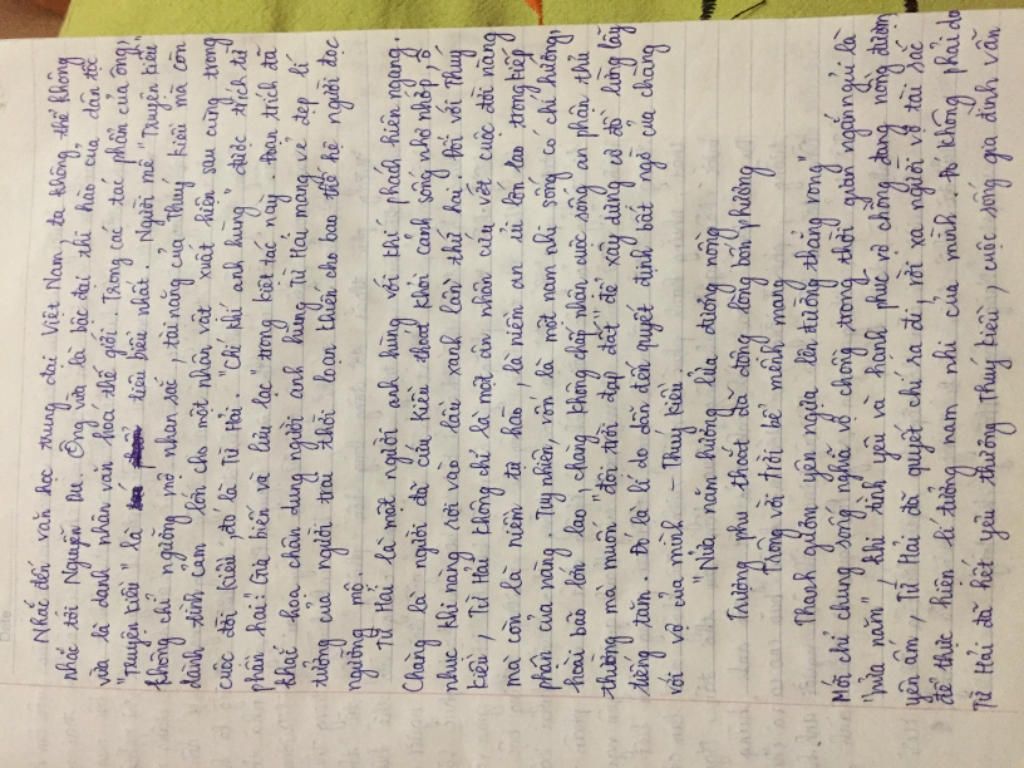 Date
Nhắc đến văn học trung đại Việt Nam, ta không thể không
nhắc tới Nguyễn Du. Ông vừa là bậc đại thi hào của dân tộc
vừa là danh nhân văn hoá thế giới. Trong các tác phẩm của ông,
"Truyện Kiều" là tiêu biểu nhất. Người mê "Truyện Kiều"
không chỉ ngưỡng mộ nhan sắc, tài năng của Thuý Kiều mà còn
dành tình cảm lớn cho một nhân vật xuất hiện sau cùng trong
cuộc đời Kiều, đó là Từ Hải. "Chí khí anh hùng" được trích từ
phần hai: "Gia biến và lưu lạc" trong kiệt tác này. Đoạn trích đã
khắc hoạ chân dung người anh hùng Từ Hải mang vẻ đẹp lí
tưởng của người trai thời loạn khiến cho bao thế hệ người đọc
ngưỡng mộ.
Từ Hải là một người anh hùng với khí phách hiên ngang.
Chàng là người đã cứu Kiều thoát khỏi cảnh sống nhơ nhớp, ô
nhục khi nàng rơi vào lầu xanh lần thứ hai. Đối với Thuý
Kiều, Từ Hải không chỉ là một ân nhân cứu vớt cuộc đời nàng
mà còn là niềm tự hào, là niềm an ủi lớn lao trong kiếp
phận của nàng. Tuy nhiên, vốn là một nam nhi sống có chí hướng,
hoài bão lớn lao, chàng không chấp nhận cuộc sống an phận thủ
thường mà muốn "đội trời đạp đất" để xây dựng cơ đồ lừng lẫy
tiếng tăm. Đó là lí do dẫn đến quyết định bất ngờ của chàng
với vợ của mình - Thuý Kiều.
"Nửa năm hương lửa đương nồng
Trượng phu thoắt đã động lòng bốn phương
Trông vời trời bể mênh mang
Thanh gươm yên ngựa lên đường thẳng rong"
Mới chỉ chung sống nghĩa vợ chồng trong thời gian ngắn ngủi là
"nửa năm", khi tình yêu và hạnh phúc vợ chồng đang nồng đượm
yên ấm, Từ Hải đã quyết chí ra đi, rời xa người vợ tài sắc
để thực hiện lí tưởng nam nhi của mình. Đó không phải do
Từ Hải đã hết yêu thương Thuý Kiều, cuộc sống gia đình vẫn